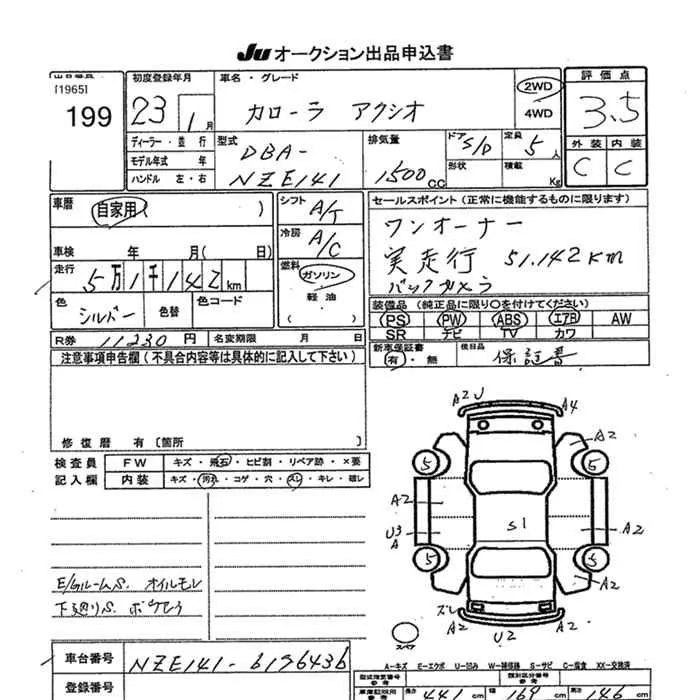 JU オークション出品申込書
[1965]
199
初度登録年月
23 1月
ディーラー・並行
モデル年式 年
ハンドル 左・右
車名・グレード
カローラ アクシオ
2WD
4WD
評価点
3.5
外装 内装
C C
型式
DBA-
NZE141
排気量
1500cc
ドア S/D
形状
定員 5人
積載 Kg
車歴
自家用( )
車検 年 月( 日)
走行 5万1千142km
色 シルバー 色替 色コード
シフト A/T
冷房 A/C
燃料
ガソリン
軽油
セールスポイント (正常に機能するものに限ります)
ワンオーナー
実走行 51.142km
バックカメラ
装備品 (純正品に限り○を付けてください)
PS PW ABS エアB AW
SR ナビ TV カワ
新車保証書
有・無
後日品 保証書
R券 11230円 名変期限 月 日
注意事項申告欄(不具合内容等は具体的に記入して下さい)
修復歴 有〔箇所 〕
検査員 FW キズ・飛石・ヒビ割・リペア跡・×要
記入欄 内装 キズ・汚れ・コゲ・穴・スレ・キレ・破レ
A2 U A4
A2
5 5
A2 A2
S1
U3 A A2
5 5
A2
ズレ
A2 U2 A2
スペア
E/gルームS. オイルモレ
下廻りS.
A-キズ E-エクボ U-凹み W-補修跡 S-サビ C-腐食 XX-交換済
車台番号 NZE141-6196436
登録番号
型式指定番号 類別区分番号
長さ 441cm 169cm 146cm